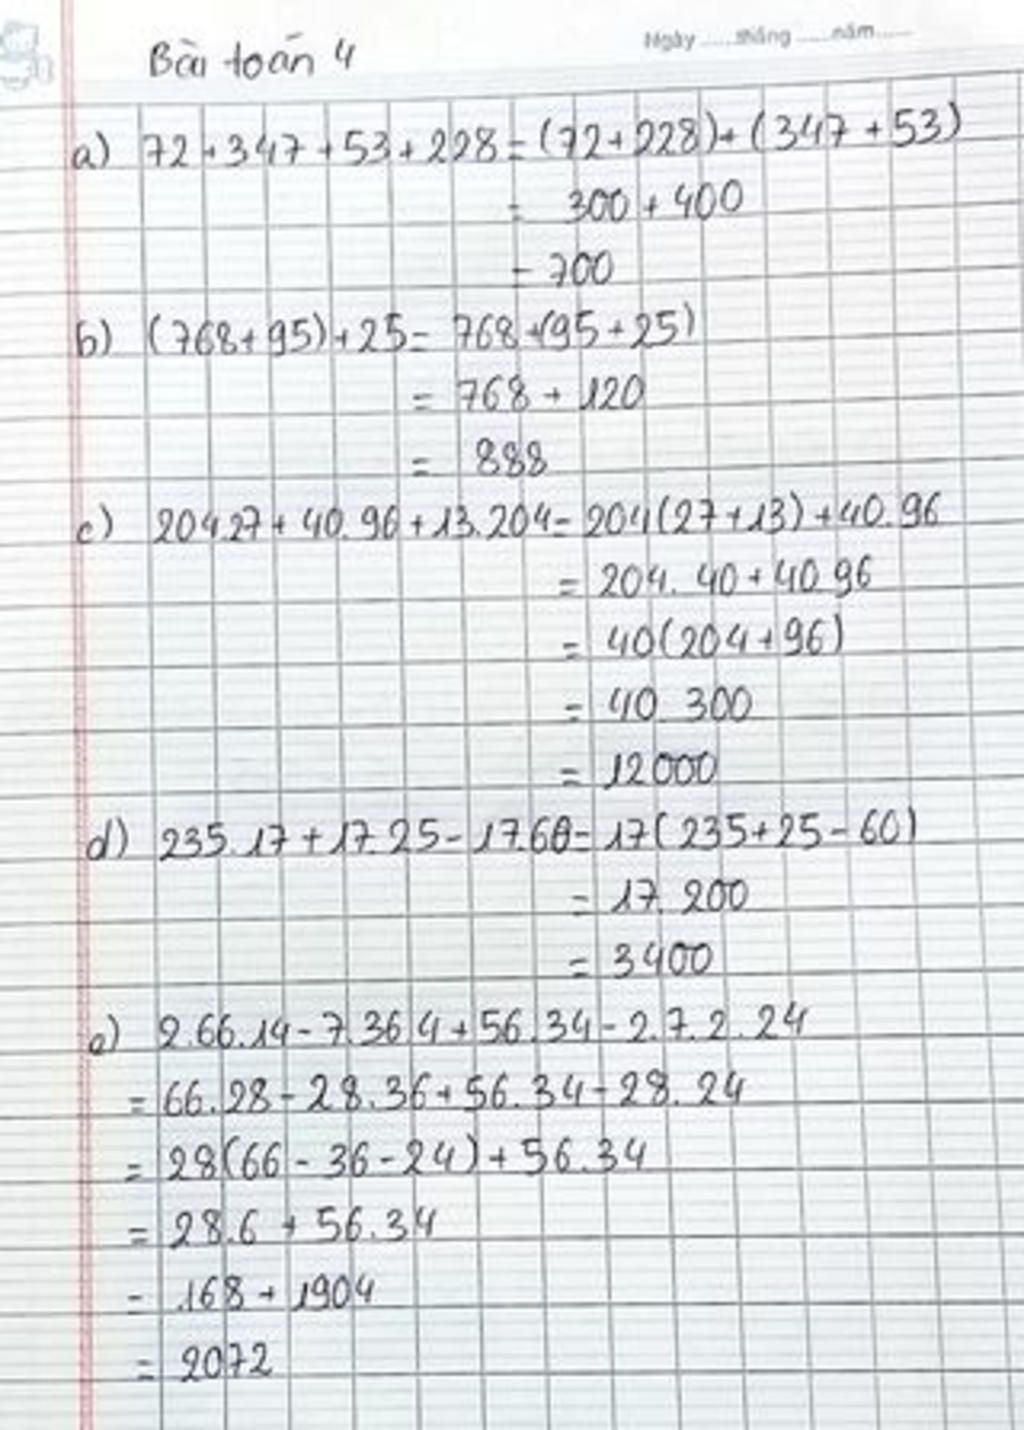 Ngày ......tháng ......năm......
Bài toán 4
a) 72+347+53+228=(72+228)+(347+53)
= 300+400
= 700
b) (768+95)+25= 768+(95+25)
= 768+120
= 888
c) 204.27+40.96+13.204=204(27+13)+40.96
= 204.40+40.96
= 40(204+96)
= 40.300
= 12000
d) 235.17+17.25-17.60=17(235+25-60)
= 17.200
= 3400
e) 2.66.14-7.36.4+56.34-2.7.2.24
= 66.28-28.36+56.34-28.24
= 28(66-36-24)+56.34
= 28.6+56.34
= 168+1904
= 2072